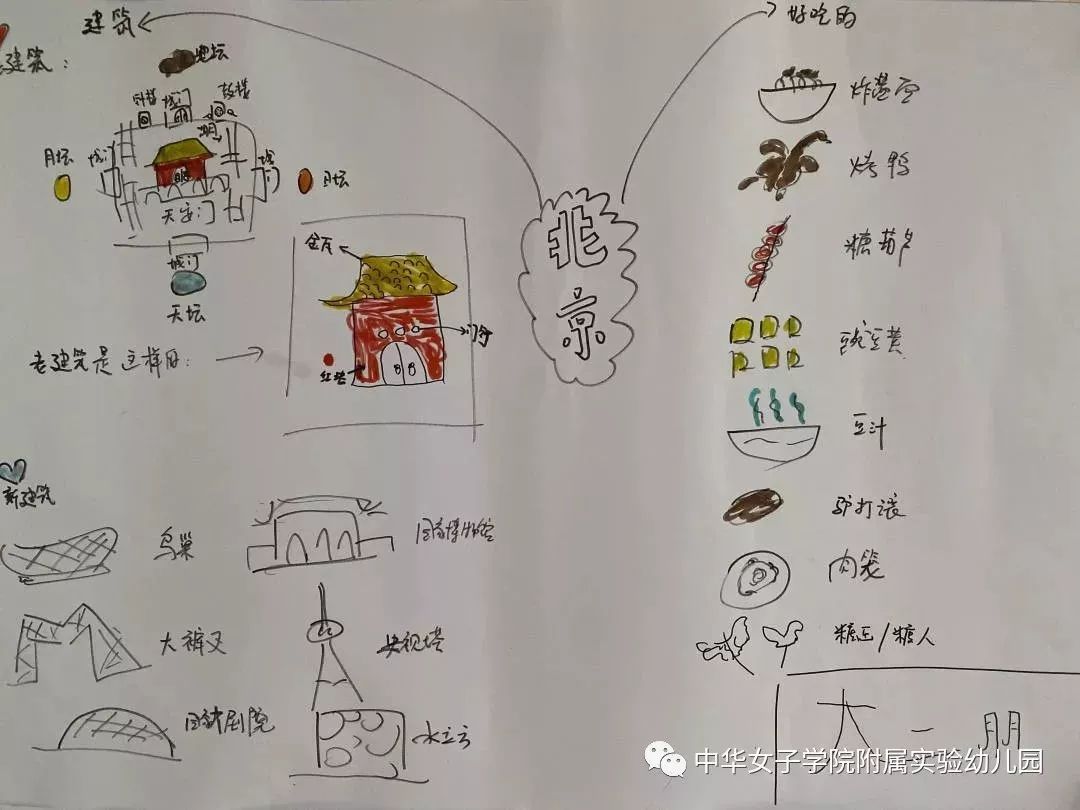 建筑
好吃的
北京
老建筑：
地坛
钟楼
城门
鼓楼
湖
月坛
城门
城门
日坛
天安门
城门
天坛
金瓦
门钉
红墙
老建筑是这样的：
新建筑
鸟巢
国家博物馆
大裤叉
央视塔
国家剧院
水立方
炸酱面
烤鸭
糖葫芦
豌豆黄
豆汁
驴打滚
肉笼
糖王/糖人
大一 朋
中华女子学院附属实验幼儿园